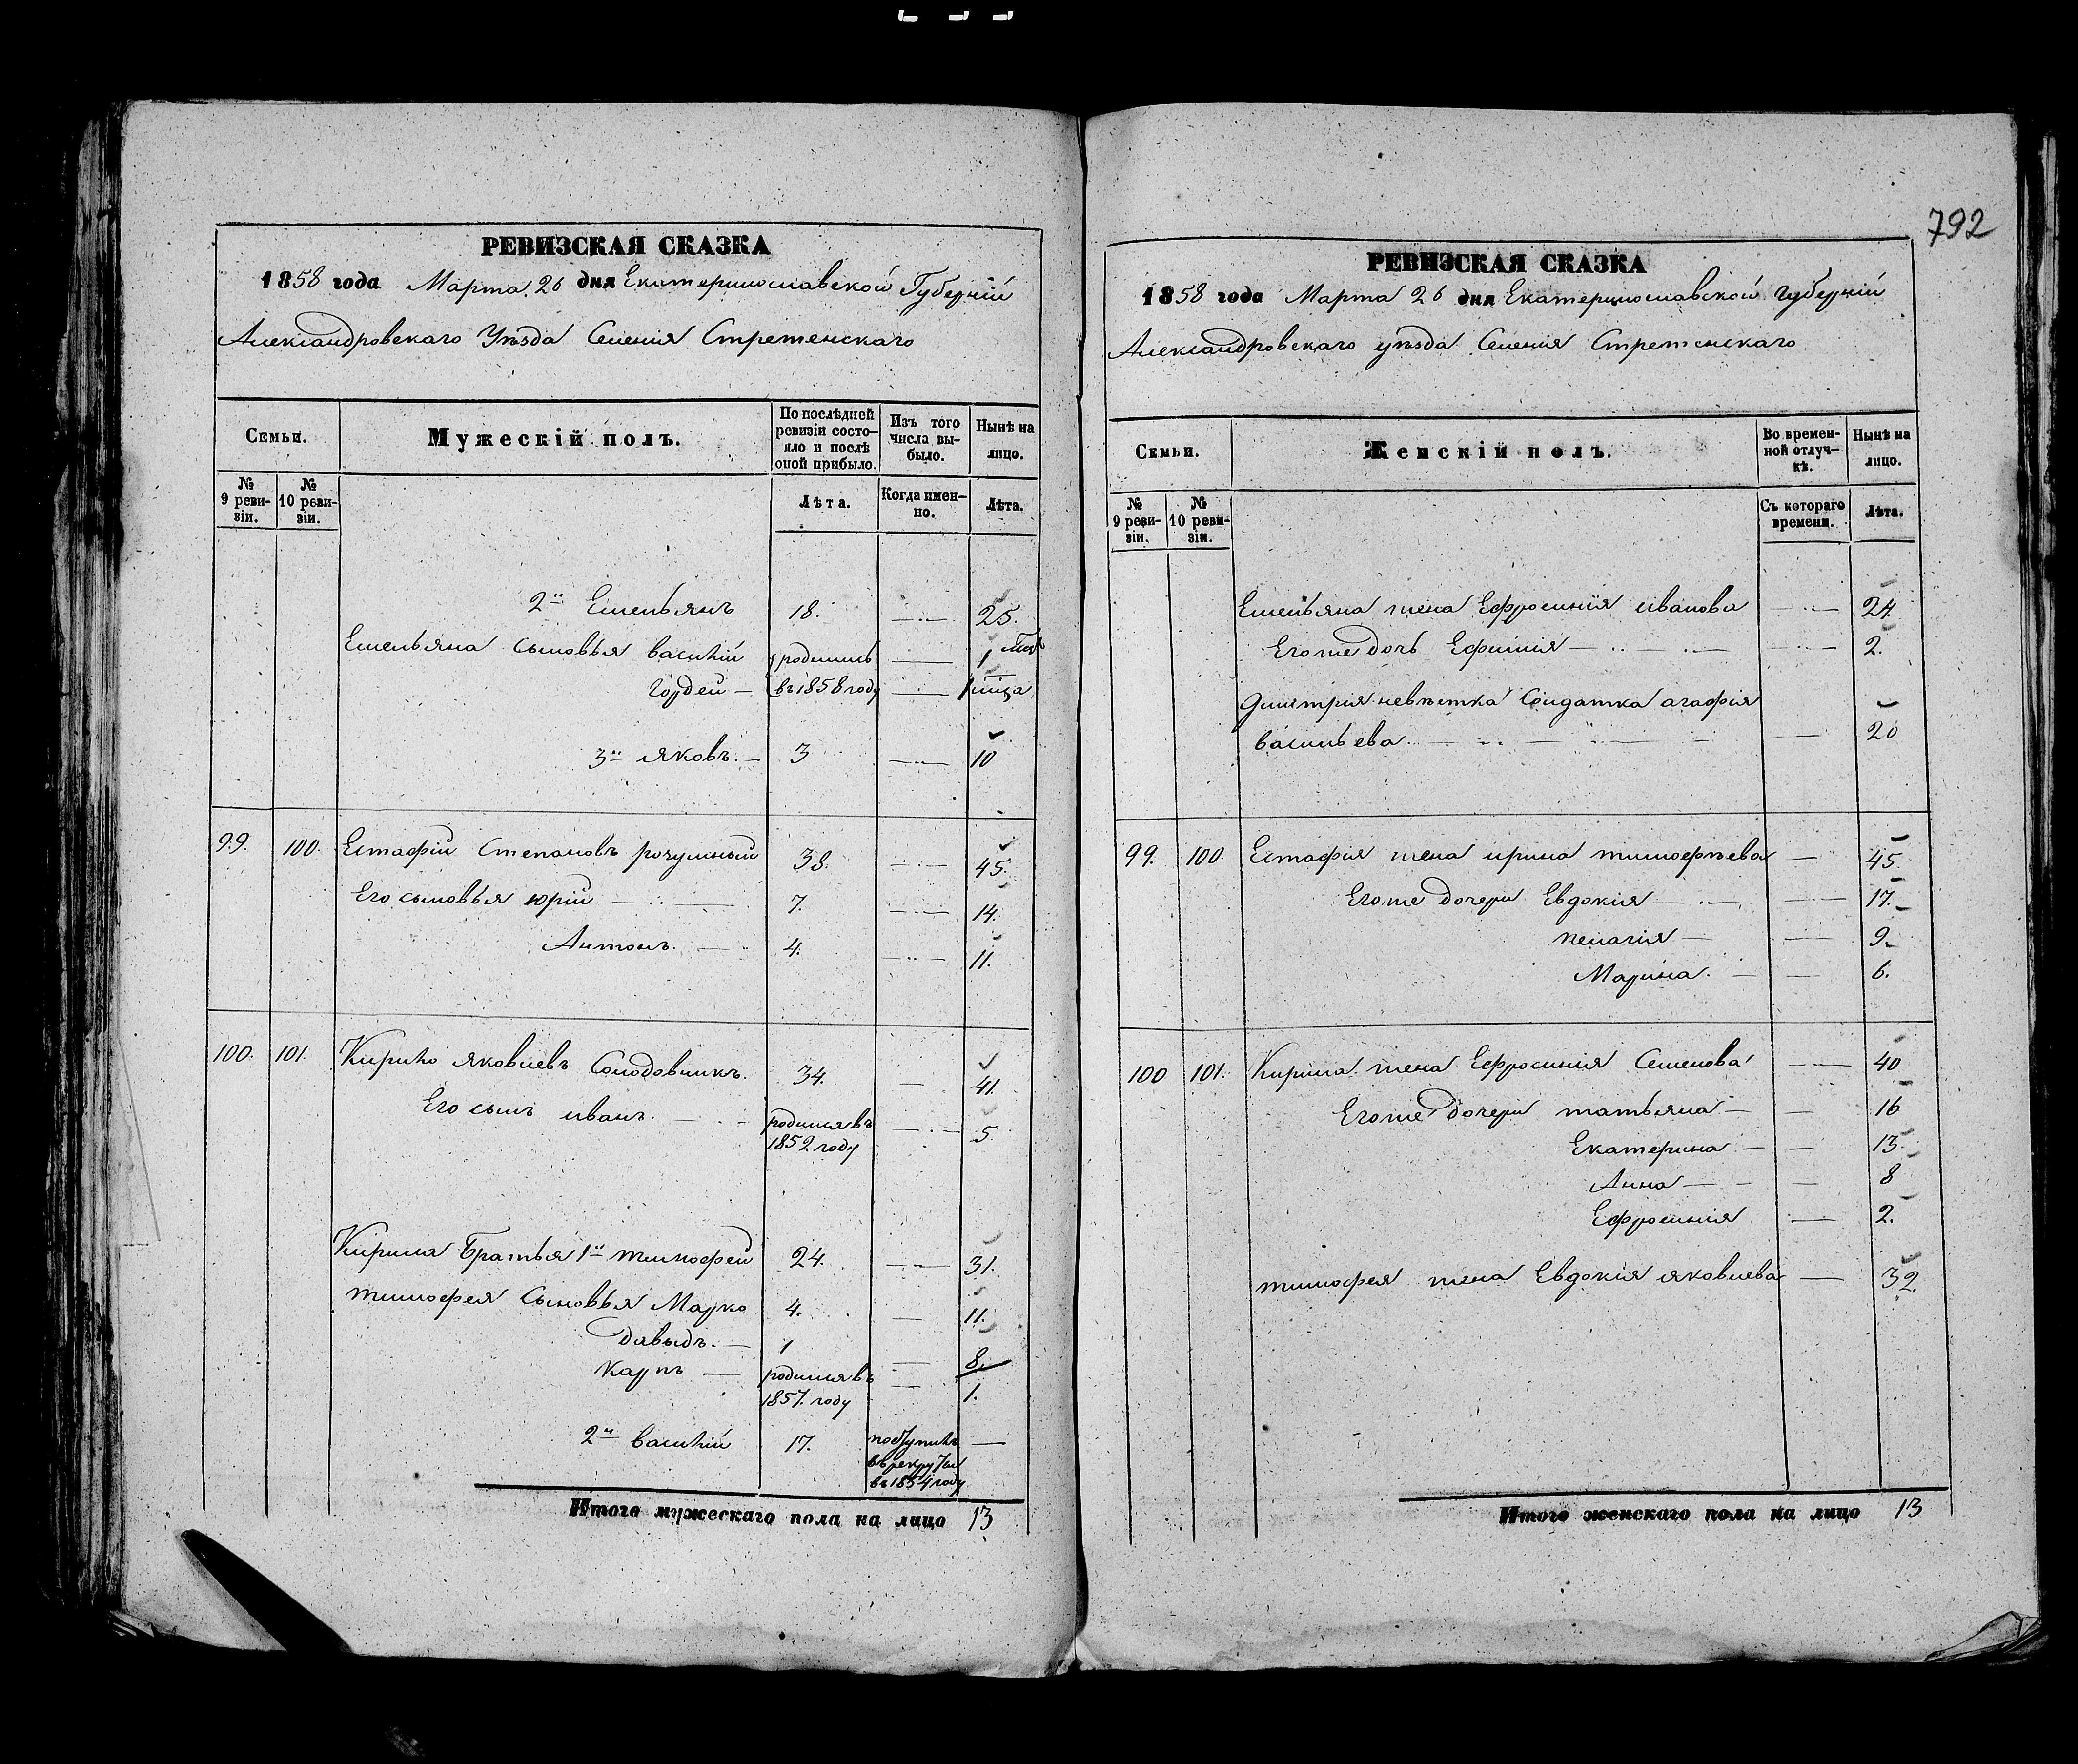 РЕВИЗСКАЯ СКАЗКА
1858 года Марта 26 дня Екатеринославской Губерніи
Александровскаго Уѣзда Селенія Стретенскаго
Семьи.
Мужескій полъ.
По послѣдней ревизіи состояло и послѣ оной прибыло.
Изъ того числа выбыло.
Нынѣ на лицо.
№ 9 ревизіи.
№ 10 ревизіи.
Лѣта.
Когда именно.
Лѣта.
2й Емельянъ 18. 25.
Емельяна сыновья василій родились 1
Гордей въ 1858 году 1
3й яковъ. 3 10
99. 100. Естафій Степановъ розумный 38. 45.
Его сыновья юрій 7. 14.
Антонъ. 4. 11.
100. 101. Кирило яковлевъ Солодовникъ. 34. 41.
Его сынъ иванъ. родился въ 5.
1852 году
Кирила Братья 1й тимофей 24. 31.
тимофея Сыновья Марко 4. 11.
давыдъ. 1 8.
Карпъ родился въ 1.
1857. году
2й василій 17. поступилъ
въ рекруты
въ 1854 году
Итого мужескаго пола на лицо 13
792
РЕВИЗСКАЯ СКАЗКА
1858 года Марта 26 дня Екатеринославской губерніи
Александровскаго уѣзда Селенія Стретенскаго
Семьи.
Женскій полъ.
Во временной отлучкѣ.
Нынѣ на лицо.
№ 9 ревизіи.
№ 10 ревизіи.
Съ котораго времени.
Лѣта.
Емельяна жена Ефросинія иванова 24.
Егоже дочь Ефимія 2.
Дмитрія невѣстка Солдатка агафія
васильева. 20
99. 100. Естафія жена ирина тимофѣева 45.
Егоже дочери Евдокія 17.
пелагія 9.
Марина. 6.
100 101. Кирила жена Ефросинія Семенова 40
Егоже дочери татьяна 16
Екатерина 13.
Анна 8
Ефросинія 2.
тимофея жена Евдокія яковлева 32.
Итого женскаго пола на лицо 13